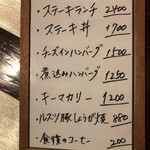 ・ステーキランチ 2400
・ステーキ丼 1700
・チーズインハンバーグ 1500
・煮込みハンバーグ 1250
・キーマカリー 1200
・ルスツ豚しょうが焼 880
・食後のコーヒー 200